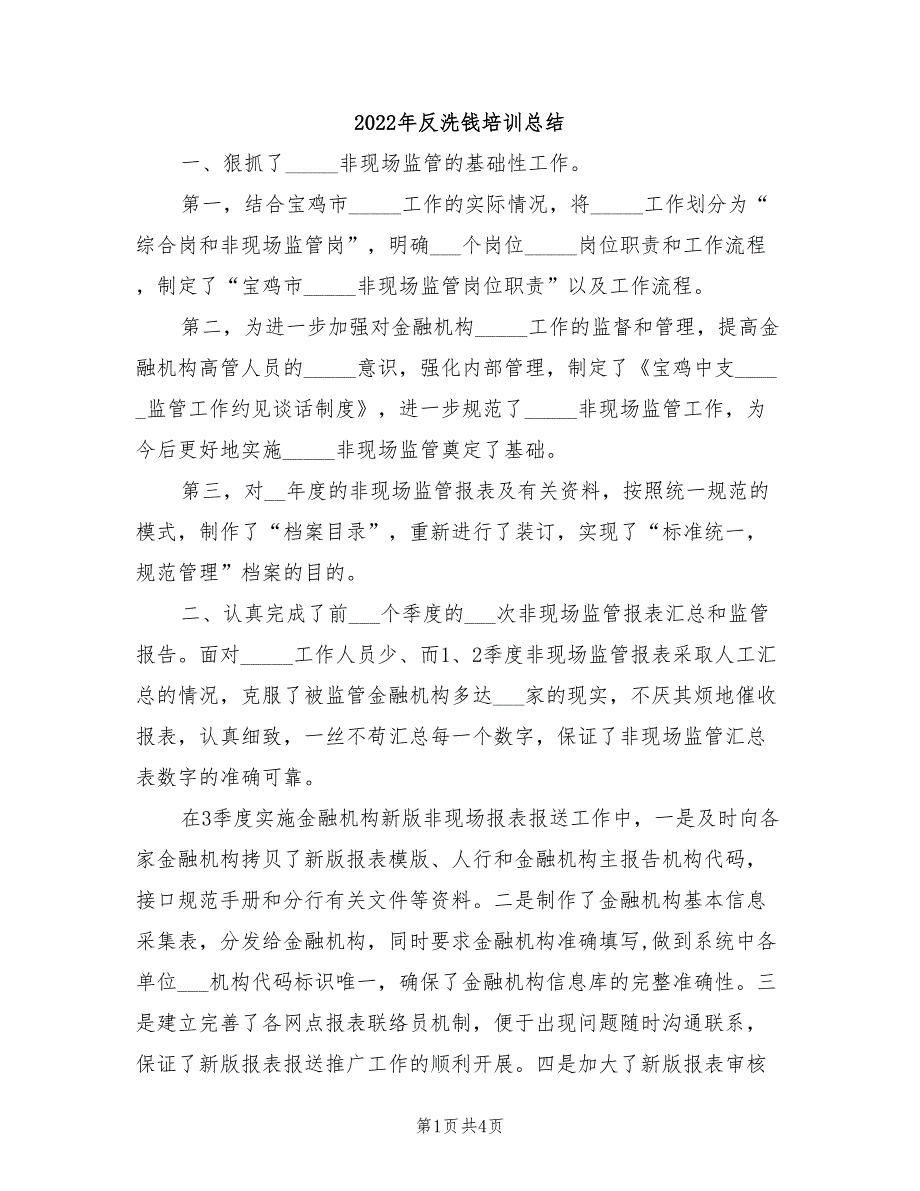 2022年反洗钱培训总结
一、狠抓了_____非现场监管的基础性工作。
第一，结合宝鸡市_____工作的实际情况，将_____工作划分为“
综合岗和非现场监管岗”，明确___个岗位_____岗位职责和工作流程
，制定了“宝鸡市_____非现场监管岗位职责”以及工作流程。
第二，为进一步加强对金融机构_____工作的监督和管理，提高金
融机构高管人员的_____意识，强化内部管理，制定了《宝鸡中支____
_监管工作约见谈话制度》，进一步规范了_____非现场监管工作，为
今后更好地实施_____非现场监管奠定了基础。
第三，对__年度的非现场监管报表及有关资料，按照统一规范的
模式，制作了“档案目录”，重新进行了装订，实现了“标准统一，
规范管理”档案的目的。
二、认真完成了前___个季度的___次非现场监管报表汇总和监管
报告。面对_____工作人员少、而1、2季度非现场监管报表采取人工汇
总的情况，克服了被监管金融机构多达___家的现实，不厌其烦地催收
报表，认真细致，一丝不苟汇总每一个数字，保证了非现场监管汇总
表数字的准确可靠。
在3季度实施金融机构新版非现场报表报送工作中，一是及时向各
家金融机构拷贝了新版报表模版、人行和金融机构主报告机构代码，
接口规范手册和分行有关文件等资料。二是制作了金融机构基本信息
采集表，分发给金融机构，同时要求金融机构准确填写,做到系统中各
单位___机构代码标识唯一，确保了金融机构信息库的完整准确性。三
是建立完善了各网点报表联络员机制，便于出现问题随时沟通联系，
保证了新版报表报送推广工作的顺利开展。四是加大了新版报表审核
第1页共4页